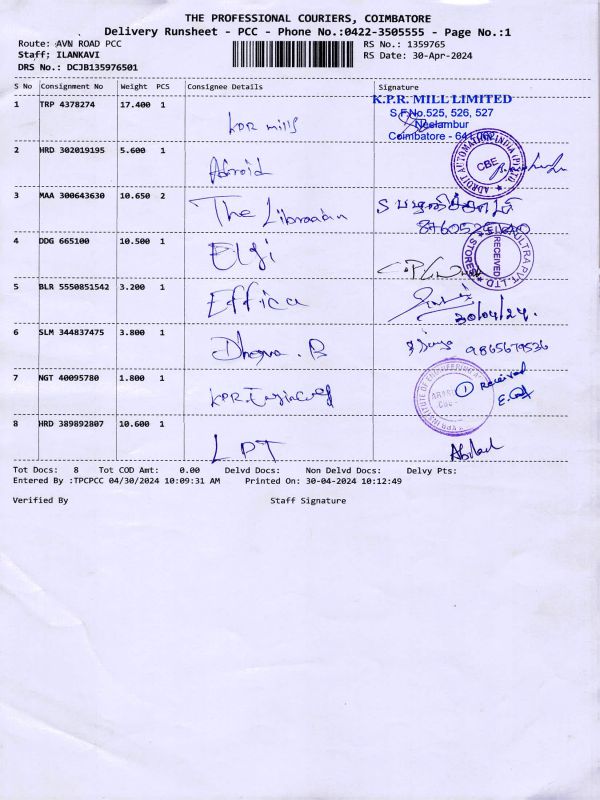 THE PROFESSIONAL COURIERS, COIMBATORE
Delivery Runsheet - PCC - Phone No.:0422-3505555 - Page No.:1
Route: AVN ROAD PCC
RS No.: 1359765
Staff; ILANKAVI
RS Date: 30-Apr-2024
DRS No.: DCJB135976501
S No Consignment No Weight PCS Consignee Details Signature
1 TRP 4378274 17.400 1 KPR mills
K.P.R. MILL LIMITED
S.F.No.525, 526, 527
Neelambur
Coimbatore - 641 062
2 HRD 302019195 5.600 1 Adroid
ADROIT AUTOMATION INDIA (P) LTD.
CBE
3 MAA 300643630 10.650 2 The Librarian
4 DDG 665100 10.500 1 Elgi
ULTRA PVT. LTD
RECEIVED
STORES
5 BLR 5550851542 3.200 1 Effica
30/04/24.
6 SLM 344837475 3.800 1 Dhana . B
9865679536
7 NGT 40095780 1.800 1 KPR Engineering
KPR INSTITUTE OF ENGINEERING
1 Received
8 HRD 389892807 10.600 1 LPT
Tot Docs: 8 Tot COD Amt: 0.00 Delvd Docs: Non Delvd Docs: Delvy Pts:
Entered By :TPCPCC 04/30/2024 10:09:31 AM Printed On: 30-04-2024 10:12:49
Verified By Staff Signature